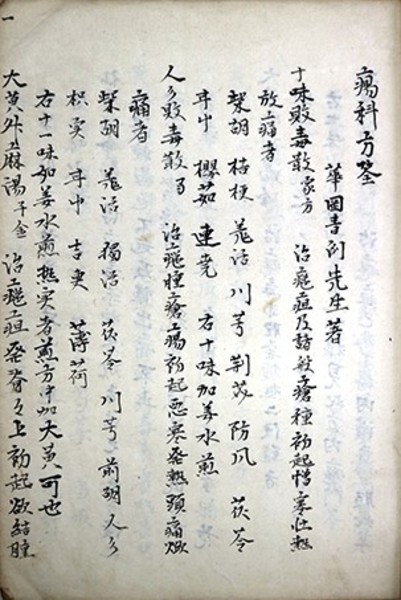 瘍科方筌
華岡青洲先生著
十味敗毒散 家方 治癰疽及諸般瘡腫初起憎寒壮熱
痛者
柴胡 桔梗 羌活 川芎 荊芥 防风 茯苓
甘中 櫻茹 連壳 右十味加姜水煎
人参敗毒散 治癰腫瘡瘍初起悪寒発熱頭痛焮
痛者
柴胡 羌活 獨活 茯苓 川芎 前胡 人参
枳実 甘中 吉更 薄荷
右十一味加姜水煎熱実者煎方中加大黄可也
大黄升麻湯 千金 治癰疽発背之上初起欲結腫